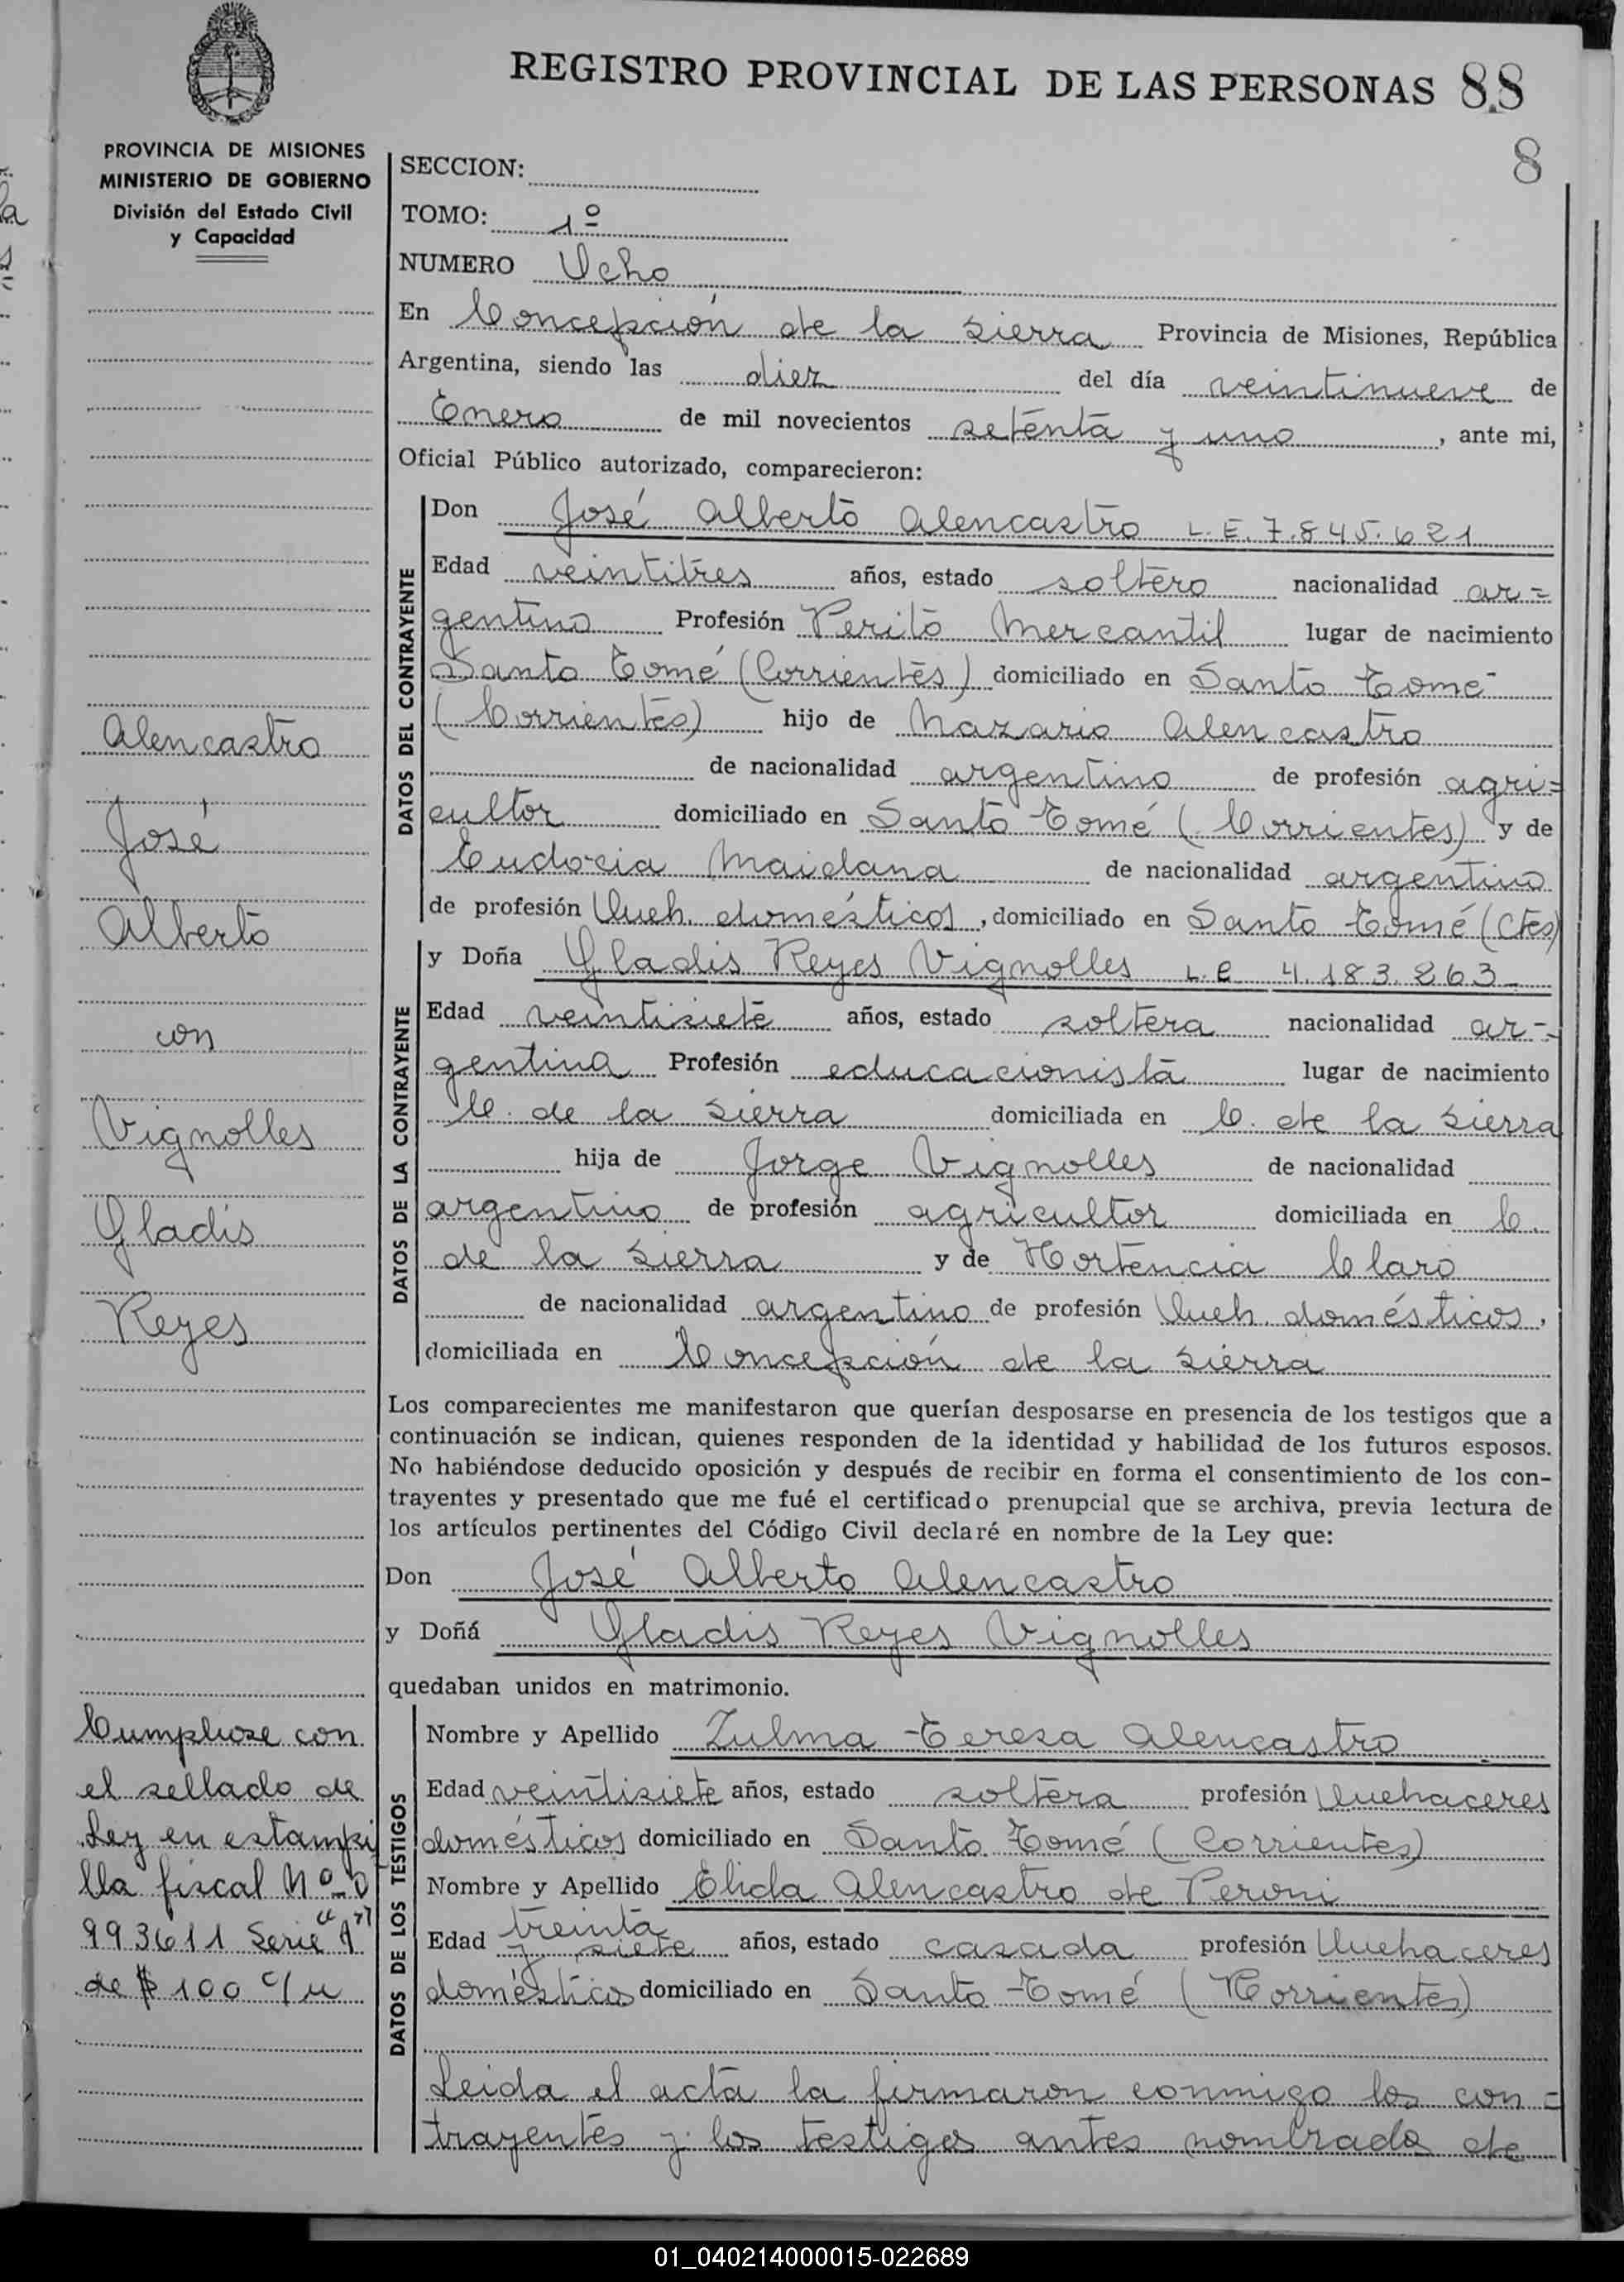 REGISTRO PROVINCIAL DE LAS PERSONAS 88
8
PROVINCIA DE MISIONES
MINISTERIO DE GOBIERNO
División del Estado Civil
y Capacidad
SECCION:
TOMO: 1º
NUMERO Ocho
En Concepción de la Sierra Provincia de Misiones, República
Argentina, siendo las diez del día veintinueve de
Enero de mil novecientos setenta y uno, ante mi,
Oficial Público autorizado, comparecieron:
DATOS DEL CONTRAYENTE
Don José Alberto Alencastro L.E. 7.845.621
Edad veintitres años, estado soltero nacionalidad ar=
gentino Profesión Perito Mercantil lugar de nacimiento
Santo Tomé (Corrientes) domiciliado en Santo Tomé
(Corrientes) hijo de Nazario Alencastro
de nacionalidad argentino de profesión agri=
cultor domiciliado en Santo Tomé (Corrientes) y de
Eudocia Maidana de nacionalidad argentino
de profesión Queh. domésticos, domiciliado en Santo Tomé (Ctes)
DATOS DE LA CONTRAYENTE
y Doña Gladis Reyes Vignolles L.C. 4.183.263
Edad veintisiete años, estado soltera nacionalidad ar=
gentina Profesión educacionista lugar de nacimiento
C. de la Sierra domiciliada en C. de la Sierra
hija de Jorge Vignolles de nacionalidad
argentino de profesión agricultor domiciliada en C.
de la Sierra y de Hortencia Claro
de nacionalidad argentino de profesión Queh. domésticos,
domiciliada en Concepción de la Sierra
Los comparecientes me manifestaron que querían desposarse en presencia de los testigos que a
continuación se indican, quienes responden de la identidad y habilidad de los futuros esposos.
No habiéndose deducido oposición y después de recibir en forma el consentimiento de los con-
trayentes y presentado que me fué el certificado prenupcial que se archiva, previa lectura de
los artículos pertinentes del Código Civil declaré en nombre de la Ley que:
Don José Alberto Alencastro
y Doñá Gladis Reyes Vignolles
quedaban unidos en matrimonio.
DATOS DE LOS TESTIGOS
Nombre y Apellido Zulma Teresa Alencastro
Edad veintisiete años, estado soltera profesión Quehaceres
domésticos domiciliado en Santo Tomé (Corrientes)
Nombre y Apellido Elida Alencastro de Peroni
Edad treinta y siete años, estado casada profesión Quehaceres
domésticos domiciliado en Santo Tomé (Corrientes)
Leida el acta la firmaron conmigo los con=
trayentes y los testigos antes nombrados de
Alencastro
José
Alberto
con
Vignolles
Gladis
Reyes
Cumpliose con
el sellado de
Ley en estampi
lla fiscal Nº 0
993611 Serie "A"
de $ 100 c/u
01_040214000015-022689